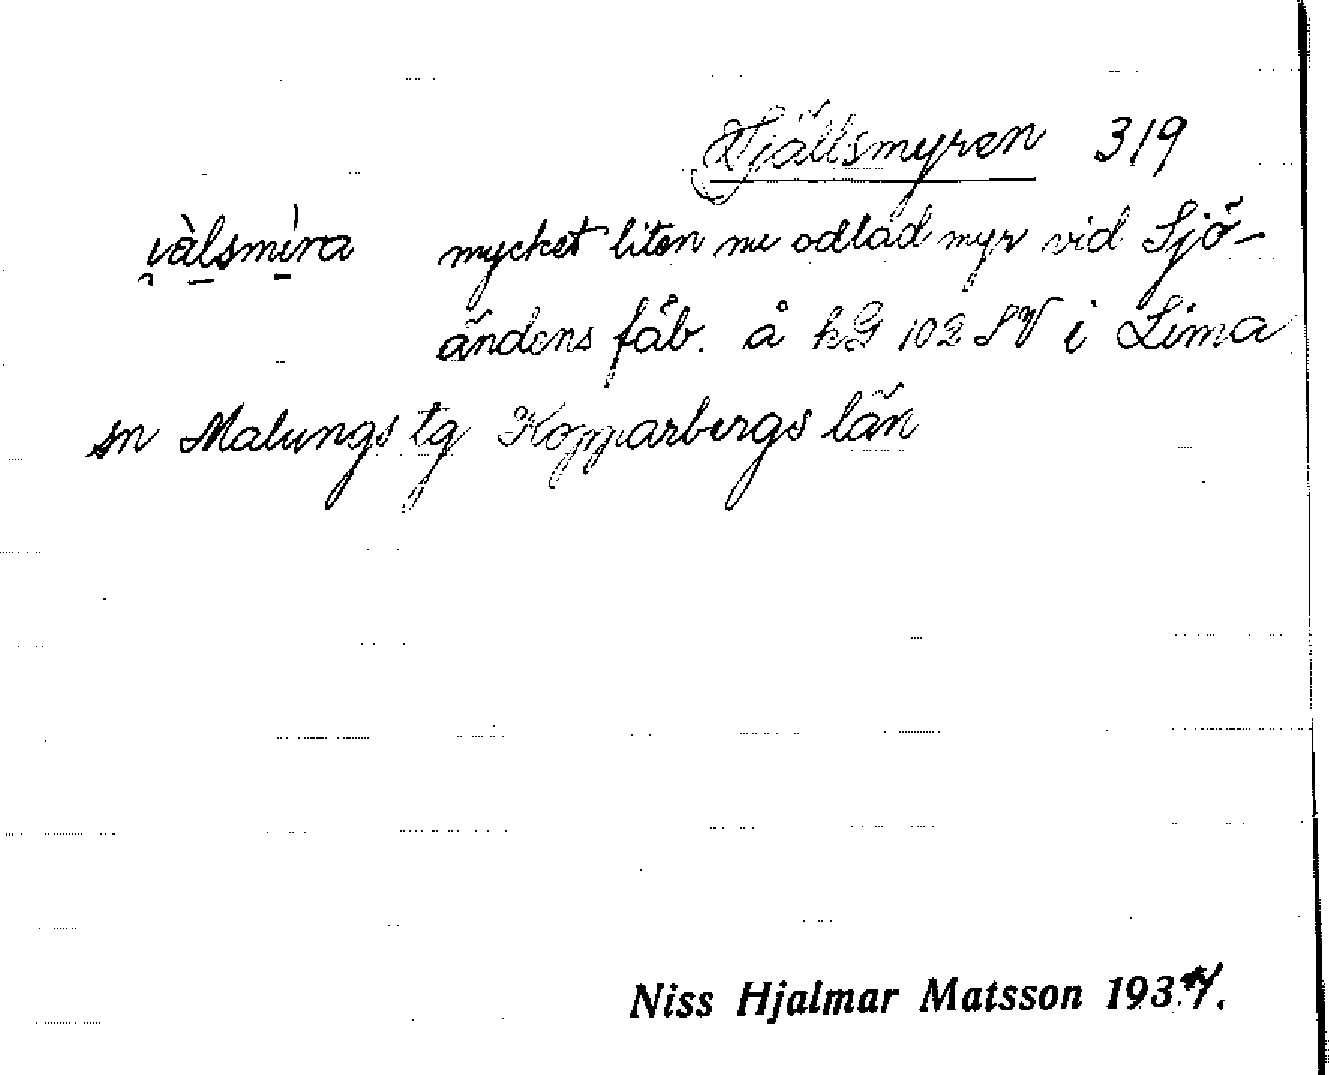 Fjällsmyren 319
vàlsmira mycket liten nu odlad myr vid Sjö-
ändens fäb. å kG 102 SV i Lima
sn Malungs tg Kopparbergs län
Niss Hjalmar Matsson 193